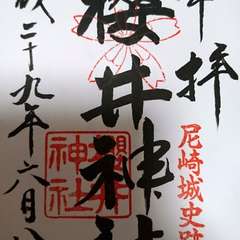 奉拝
尼崎城史跡
櫻井神社
櫻井
神社
成二十九年六月八